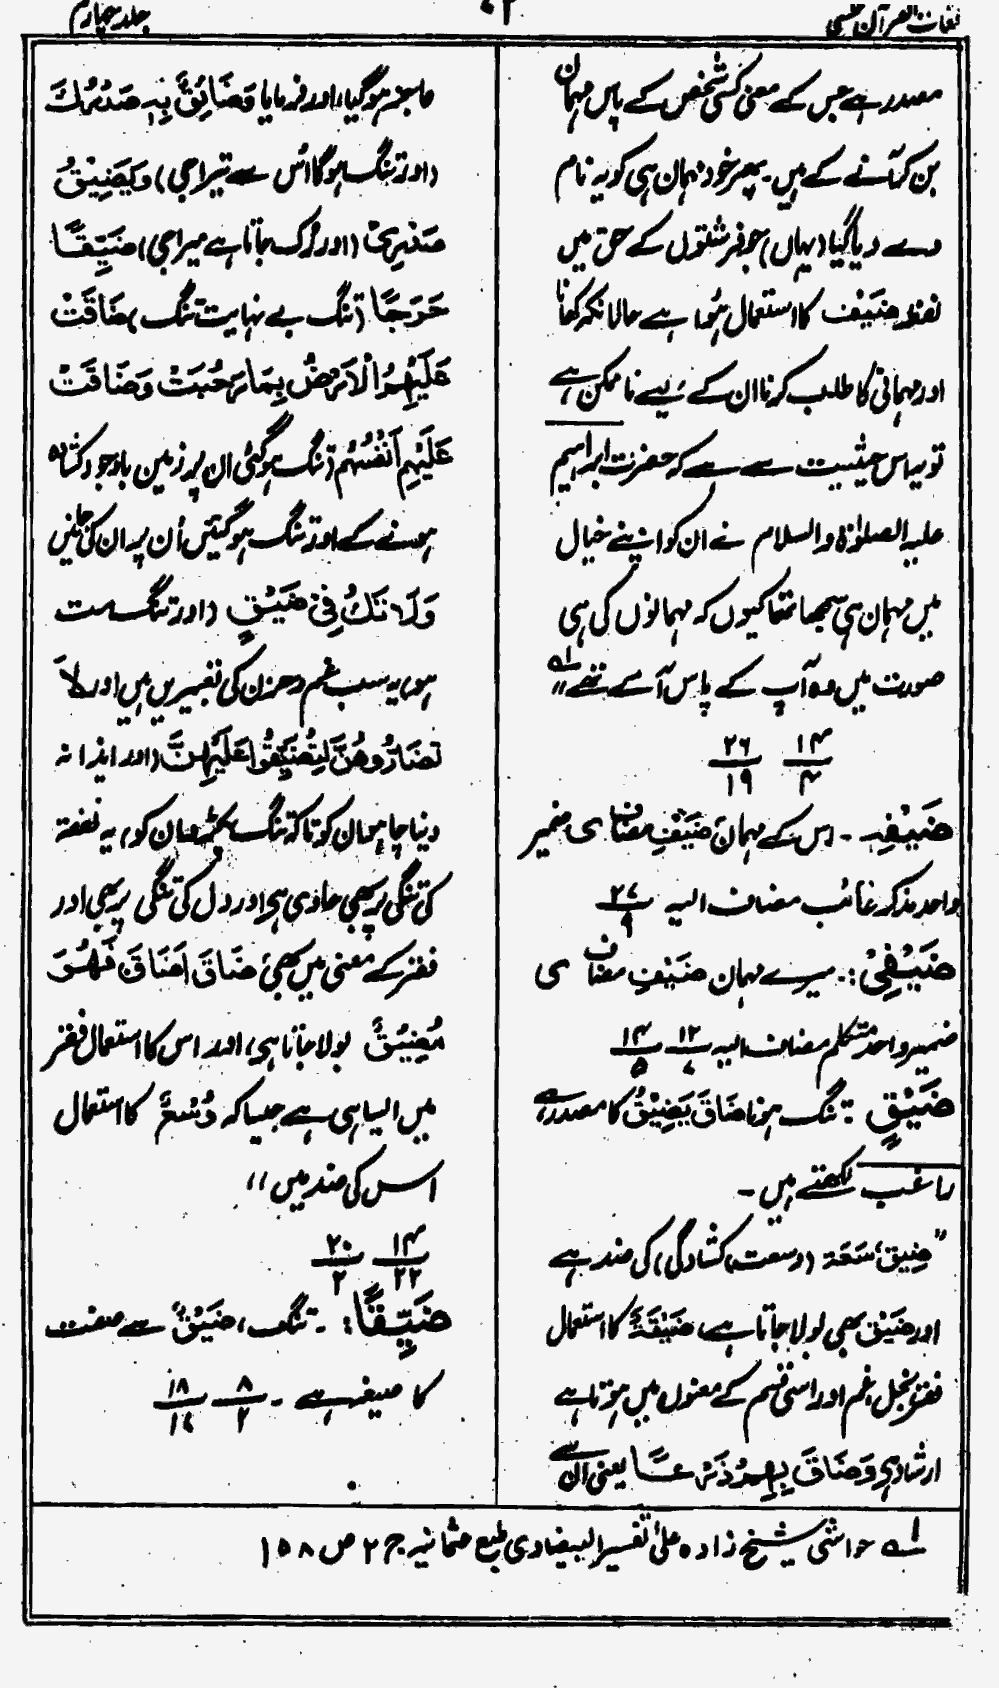 لغات القرآن
جلد چہارم
مصدر ہے جس کے معنی کسی شخص کے پاس مہمان
بن کر آنے کے ہیں۔ پھر خود مہمان ہی کو یہ نام
دے دیا گیا (یہاں) جو فرشتوں کے حق میں
لفظ ضَیْف کا استعمال ہُوا ہے حالانکہ کھانا
اور مہمانی کا طلب کرنا ان کے لیے ناممکن ہے
تو یہ اس حیثیت سے ہے کہ حضرت ابراہیم
علیہ الصلوٰۃ والسلام نے ان کو اپنے خیال
میں مہمان ہی سمجھا تھا کیوں کہ مہمانوں کی ہی
صورت میں وہ آپ کے پاس آئے تھے،، لہ
۱۴/۴ ۲۶/۱۹
ضَیْفِہٖ ۔ اس کے مہمان ضَیْفِ مضاف ی ضمیر
واحد مذکر غائب مضاف الیہ ۲۷/۹
ضَیْفِیْ :۔ میرے مہمان ضَیْفِ مضاف ی
ضمیر واحد متکلم مضاف الیہ ۱۲/۷ ۱۴/۵
ضَیْقٍ :۔ تنگ ہونا ضَاقَ یَضِیْقُ کا مصدر ہے،
راغب لکھتے ہیں۔
"ضِیق، سَعَۃ (وسعت، کشادگی) کی ضد ہے
اور ضَیْق بھی بولا جاتا ہے، ضَیْقَۃٌ کا استعمال
فقر، بخل، غم اور اسی قسم کے معنوں میں ہوتا ہے
ارشاد ہی وَضَاقَ بِھِمْ ذَرْعًا یعنی ان سے
عاجز ہو گیا، اور فرمایا وَضَائِقٌ بِہٖ صَدْرُكَ
(اور تنگ ہوگا اُس سے تیرا جی) وَیَضِیْقُ
صَدْرِیْ (اور رُک جاتا ہے میرا جی) ضَیِّقًا
حَرَجًا (تنگ بے نہایت تنگ) ضَاقَتْ
عَلَیْہِمُ الْاَرْضُ بِمَا رَحُبَتْ وَضَاقَتْ
عَلَیْہِمْ اَنْفُسُہُمْ (تنگ ہو گئی ان پر زمین باوجود کشادہ
ہونے کے اور تنگ ہو گئیں اُن پر ان کی جانیں
وَلَا تَكُ فِیْ ضَیْقٍ (اور تنگ مت
ہو، یہ سب غم و حزن کی تفسیریں ہیں اور لَا
تُضَارُّوْھُنَّ لِتُضَیِّقُوْا عَلَیْہِنَّ (اور ایذا نہ
دینا چاہو ان کو تاکہ تنگ پکڑو ان کو، یہ نفقہ
کی تنگی پر بھی حاوی ہی اور دل کی تنگی پر بھی اور
فقر کے معنی میں بھی ضَاقَ اَضَاقَ فَھُوَ
مُضِیْقٌ بولا جاتا ہی، اور اس کا استعمال فقر
میں ایسا ہی ہے جیسا کہ وُسْعٌ کا استعمال
اس کی ضد میں ،،
۱۴/۲۲ ۲۰/۲
ضَیِّقًا :۔ تنگ، ضَیْقٌ سے صفت
کا صیغہ ہے ۔ ۸/۲ ۱۸/۱۷
لہ حواشی شیخ زادہ علیٰ تفسیر البیضاوی طبع عثمانیہ ج ۲ ص ۱۵۸